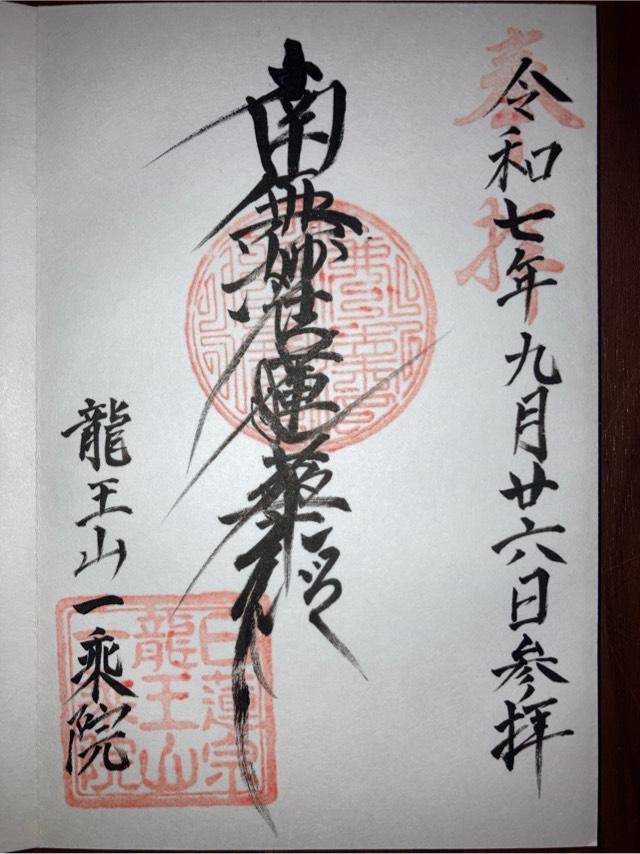 奉拝
令和七年九月廿六日参拝
南無妙法蓮華経
龍王山一乗院
日蓮宗
龍王山
一乗院